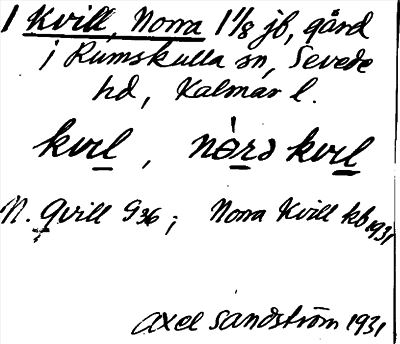 1 Kvill, Norra 1 1/8 jb, gård
i Rumskulla sn, Sevede
hd, Kalmar l.
kvil, nòrə kvil
N. Qvill G36; Norra Kvill kb 1931
Axel Sandström 1931